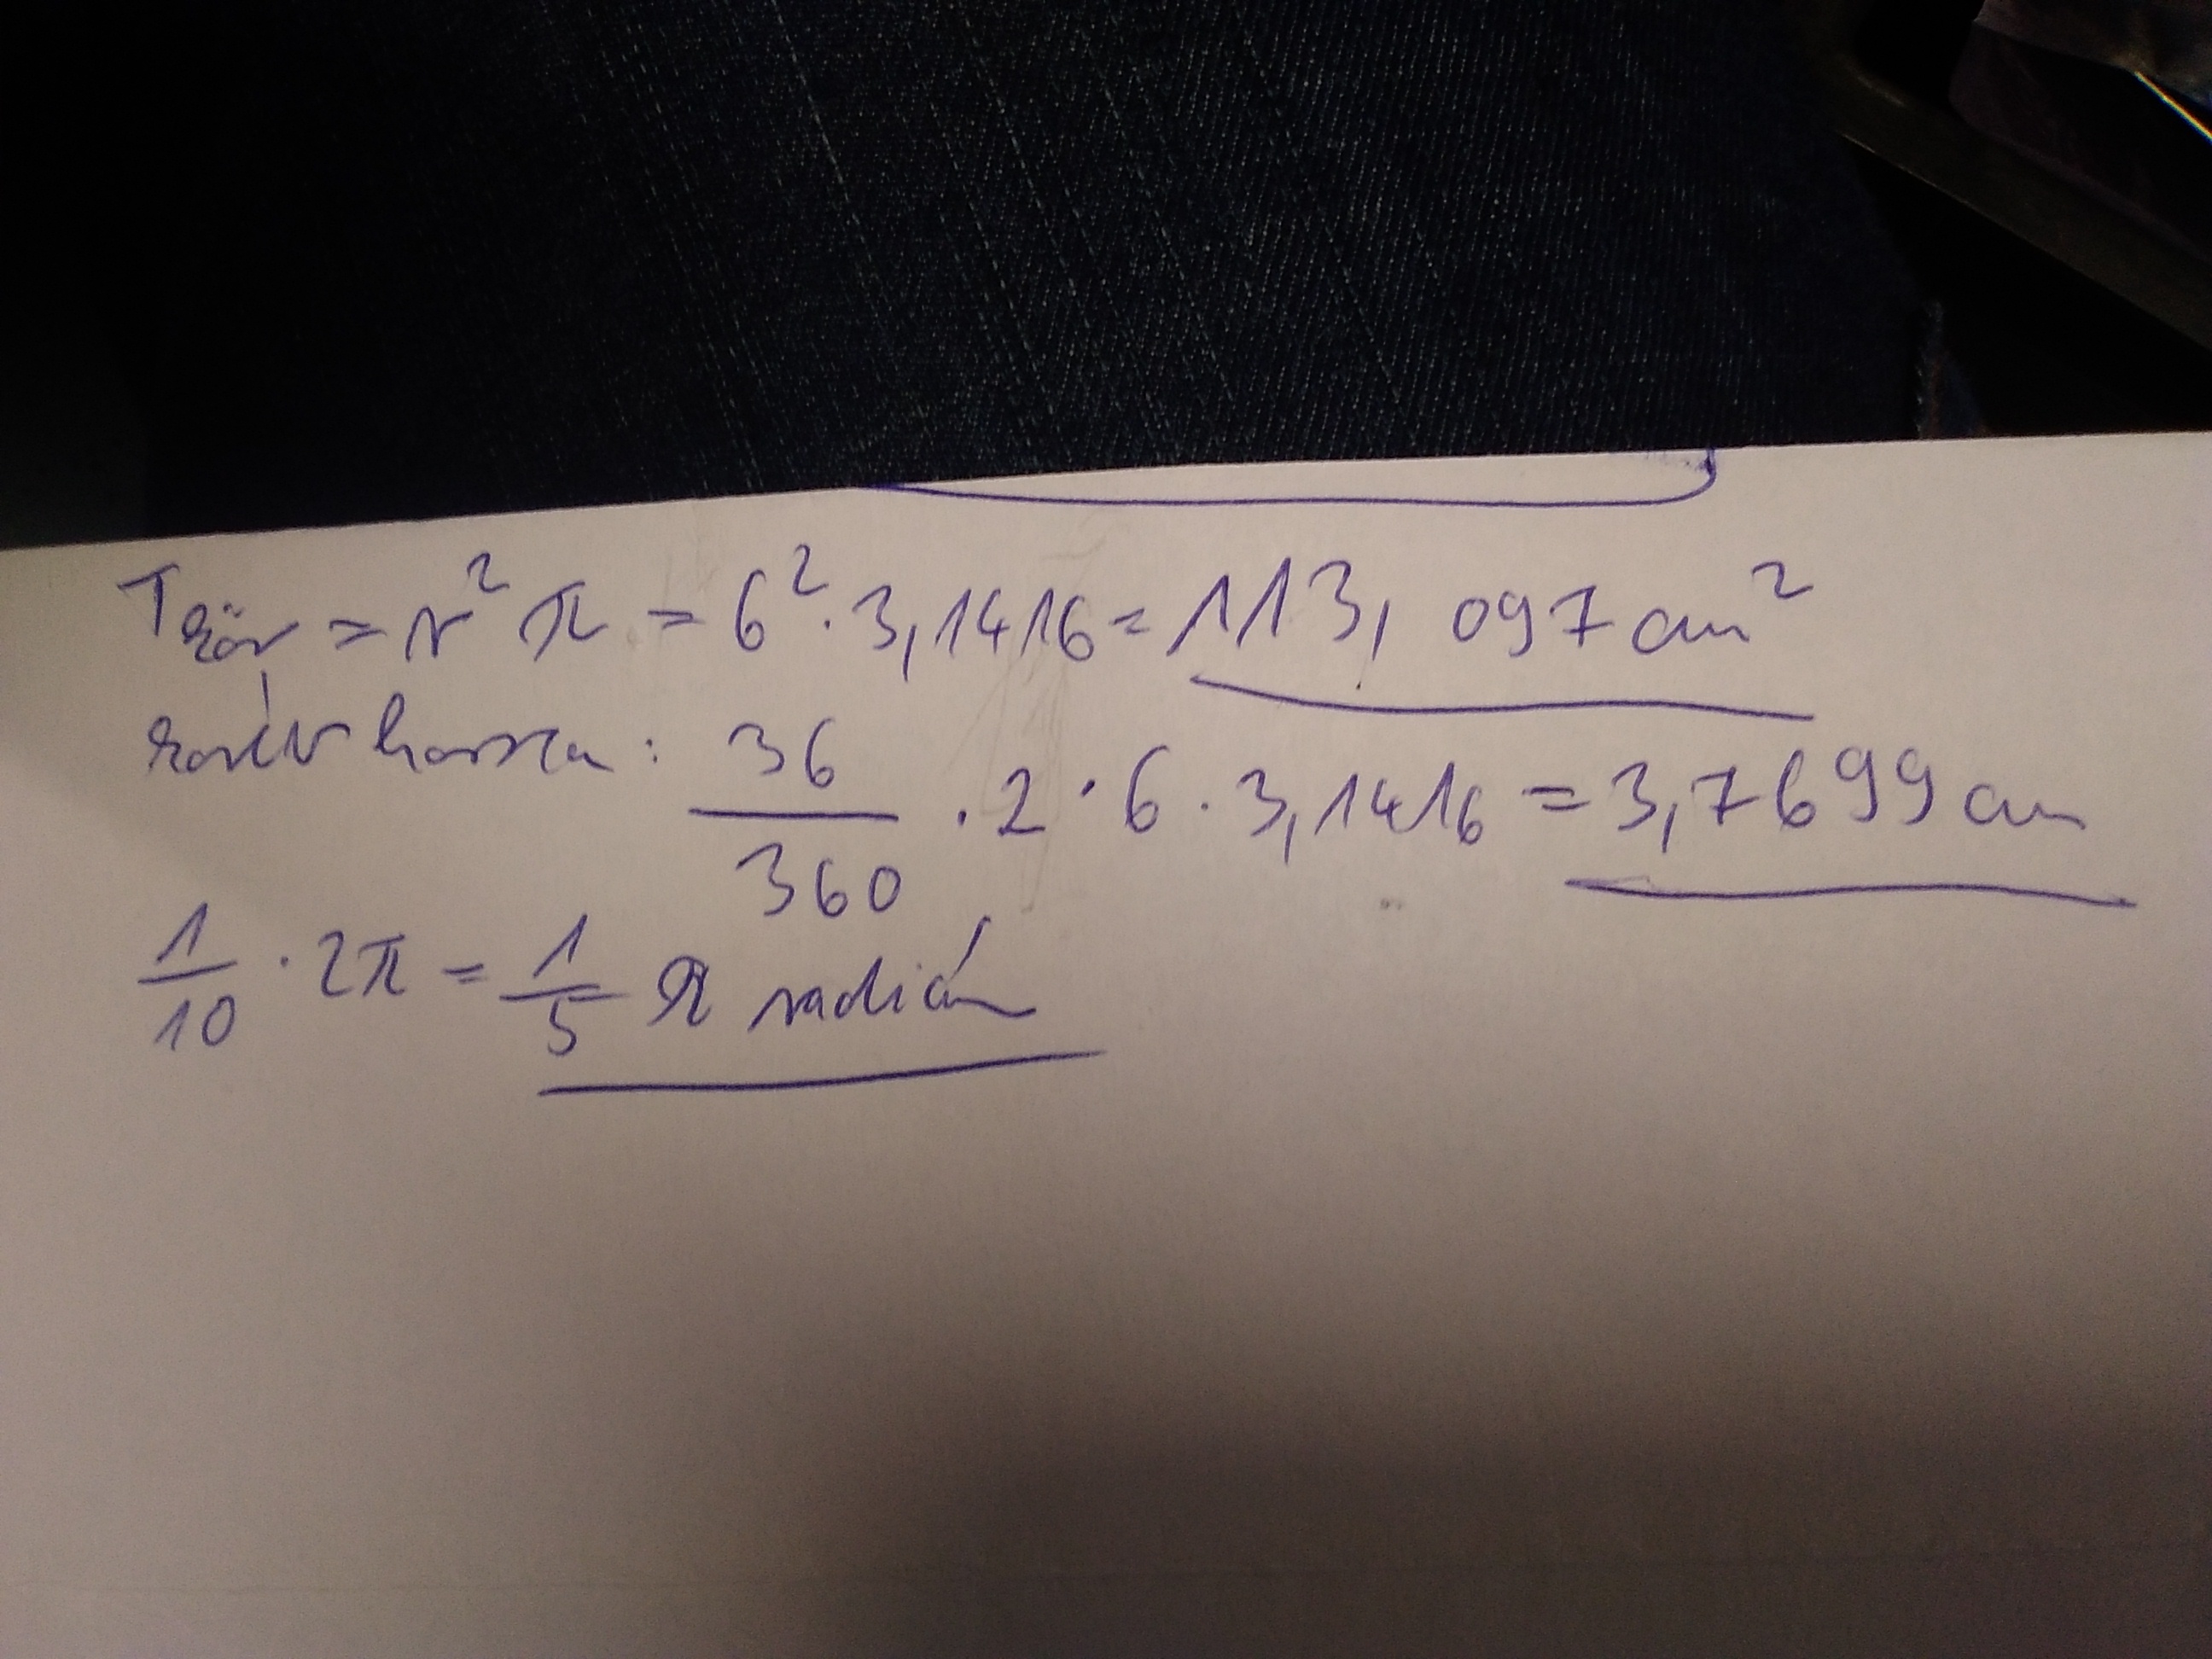 T kör = r² π = 6² · 3,1416 = 113, 097 cm²
körív hossza : 36/360 · 2 · 6 · 3,1416 = 3,7699 cm
1/10 · 2π = 1/5 π radián